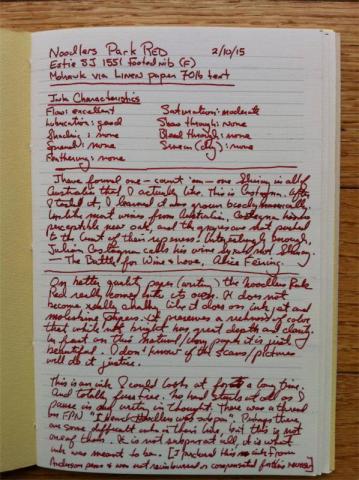 Noodlers Park RED 2/10/15
Estie SJ 1551 footed nib (F)
Mohawk via Linen paper 70lb text
Ink Characteristics
Flow: excellent Saturation: moderate
Lubrication: good Show through: none
Shading: none Bleed through: none
Spread: none Sheen (City): none
Feathering: none
I have found one - count 'em - one Shiraz in all of
Australia that I actually like. This is Castagna. After
I tasted it, I learned it was grown biodynamically.
Unlike most wines from Australia, Castagna has no
perceptible new oak, and the grapes are not pushed
to the limit of their ripeness! Interestingly enough,
Julian Castagna calls his wines Syrah, not Shiraz.
- The Battle for Wine & Love, Alice Feiring
On better quality paper (writing) the Noodlers Park
Red really comes into its own. It does not
become really chalky like it does on ink jet and
moleskine papers. It preserves a richness of color
that while not bright has great depth and clarity.
In fact on this natural/ivory paper it is just
beautiful. I don't know if the scans/pictures
will do it justice.
This is an ink I could look at for a long time.
And totally fuss free. No hard starts at all as I
pause in my write in thought. There was a thread
on FPN "I know Noodlers was slipain". Perhaps there
are some difficult inks in their line, but this is not
one of them. It is not subpar at all, it is what
ink was meant to be. [I purchased this ink from
Anderson pens & was not reimbursed or compensated for this review]